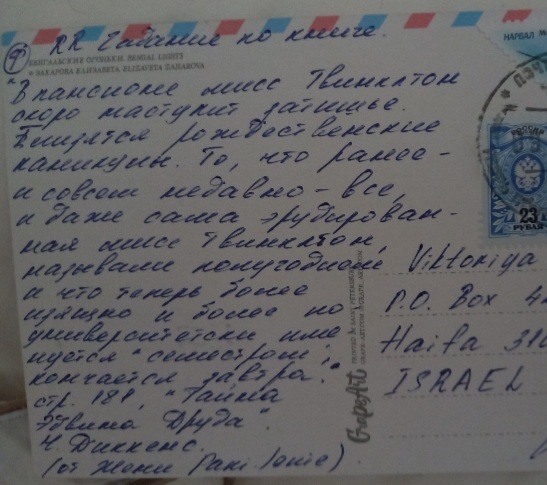 RR Гадание по книге.
БЕНГАЛЬСКИЕ ОГОНЬКИ. BENGAL LIGHTS
© ЗАХАРОВА ЕЛИЗАВЕТА. ELIZAVETA ZAHAROVA
"В пансионе мисс Твинклтон
скоро наступит затишье.
Близятся рождественские
каникулы. То, что ранее -
и совсем недавно - все,
и даже сама эрудирован-
ная мисс Твинклтон,
называли полугодием
и что теперь более
изящно и более по
университетски име
нуется "семестром",
кончается завтра."
стр. 181, "Тайна
Эдвина Друда".
Ч. Диккенс.
(от Жени
НАРВАЛ
РОССИЯ
23
РУБЛЯ
Viktoriya
P.O. Box
Haifa
ISRAEL
GrapeArt